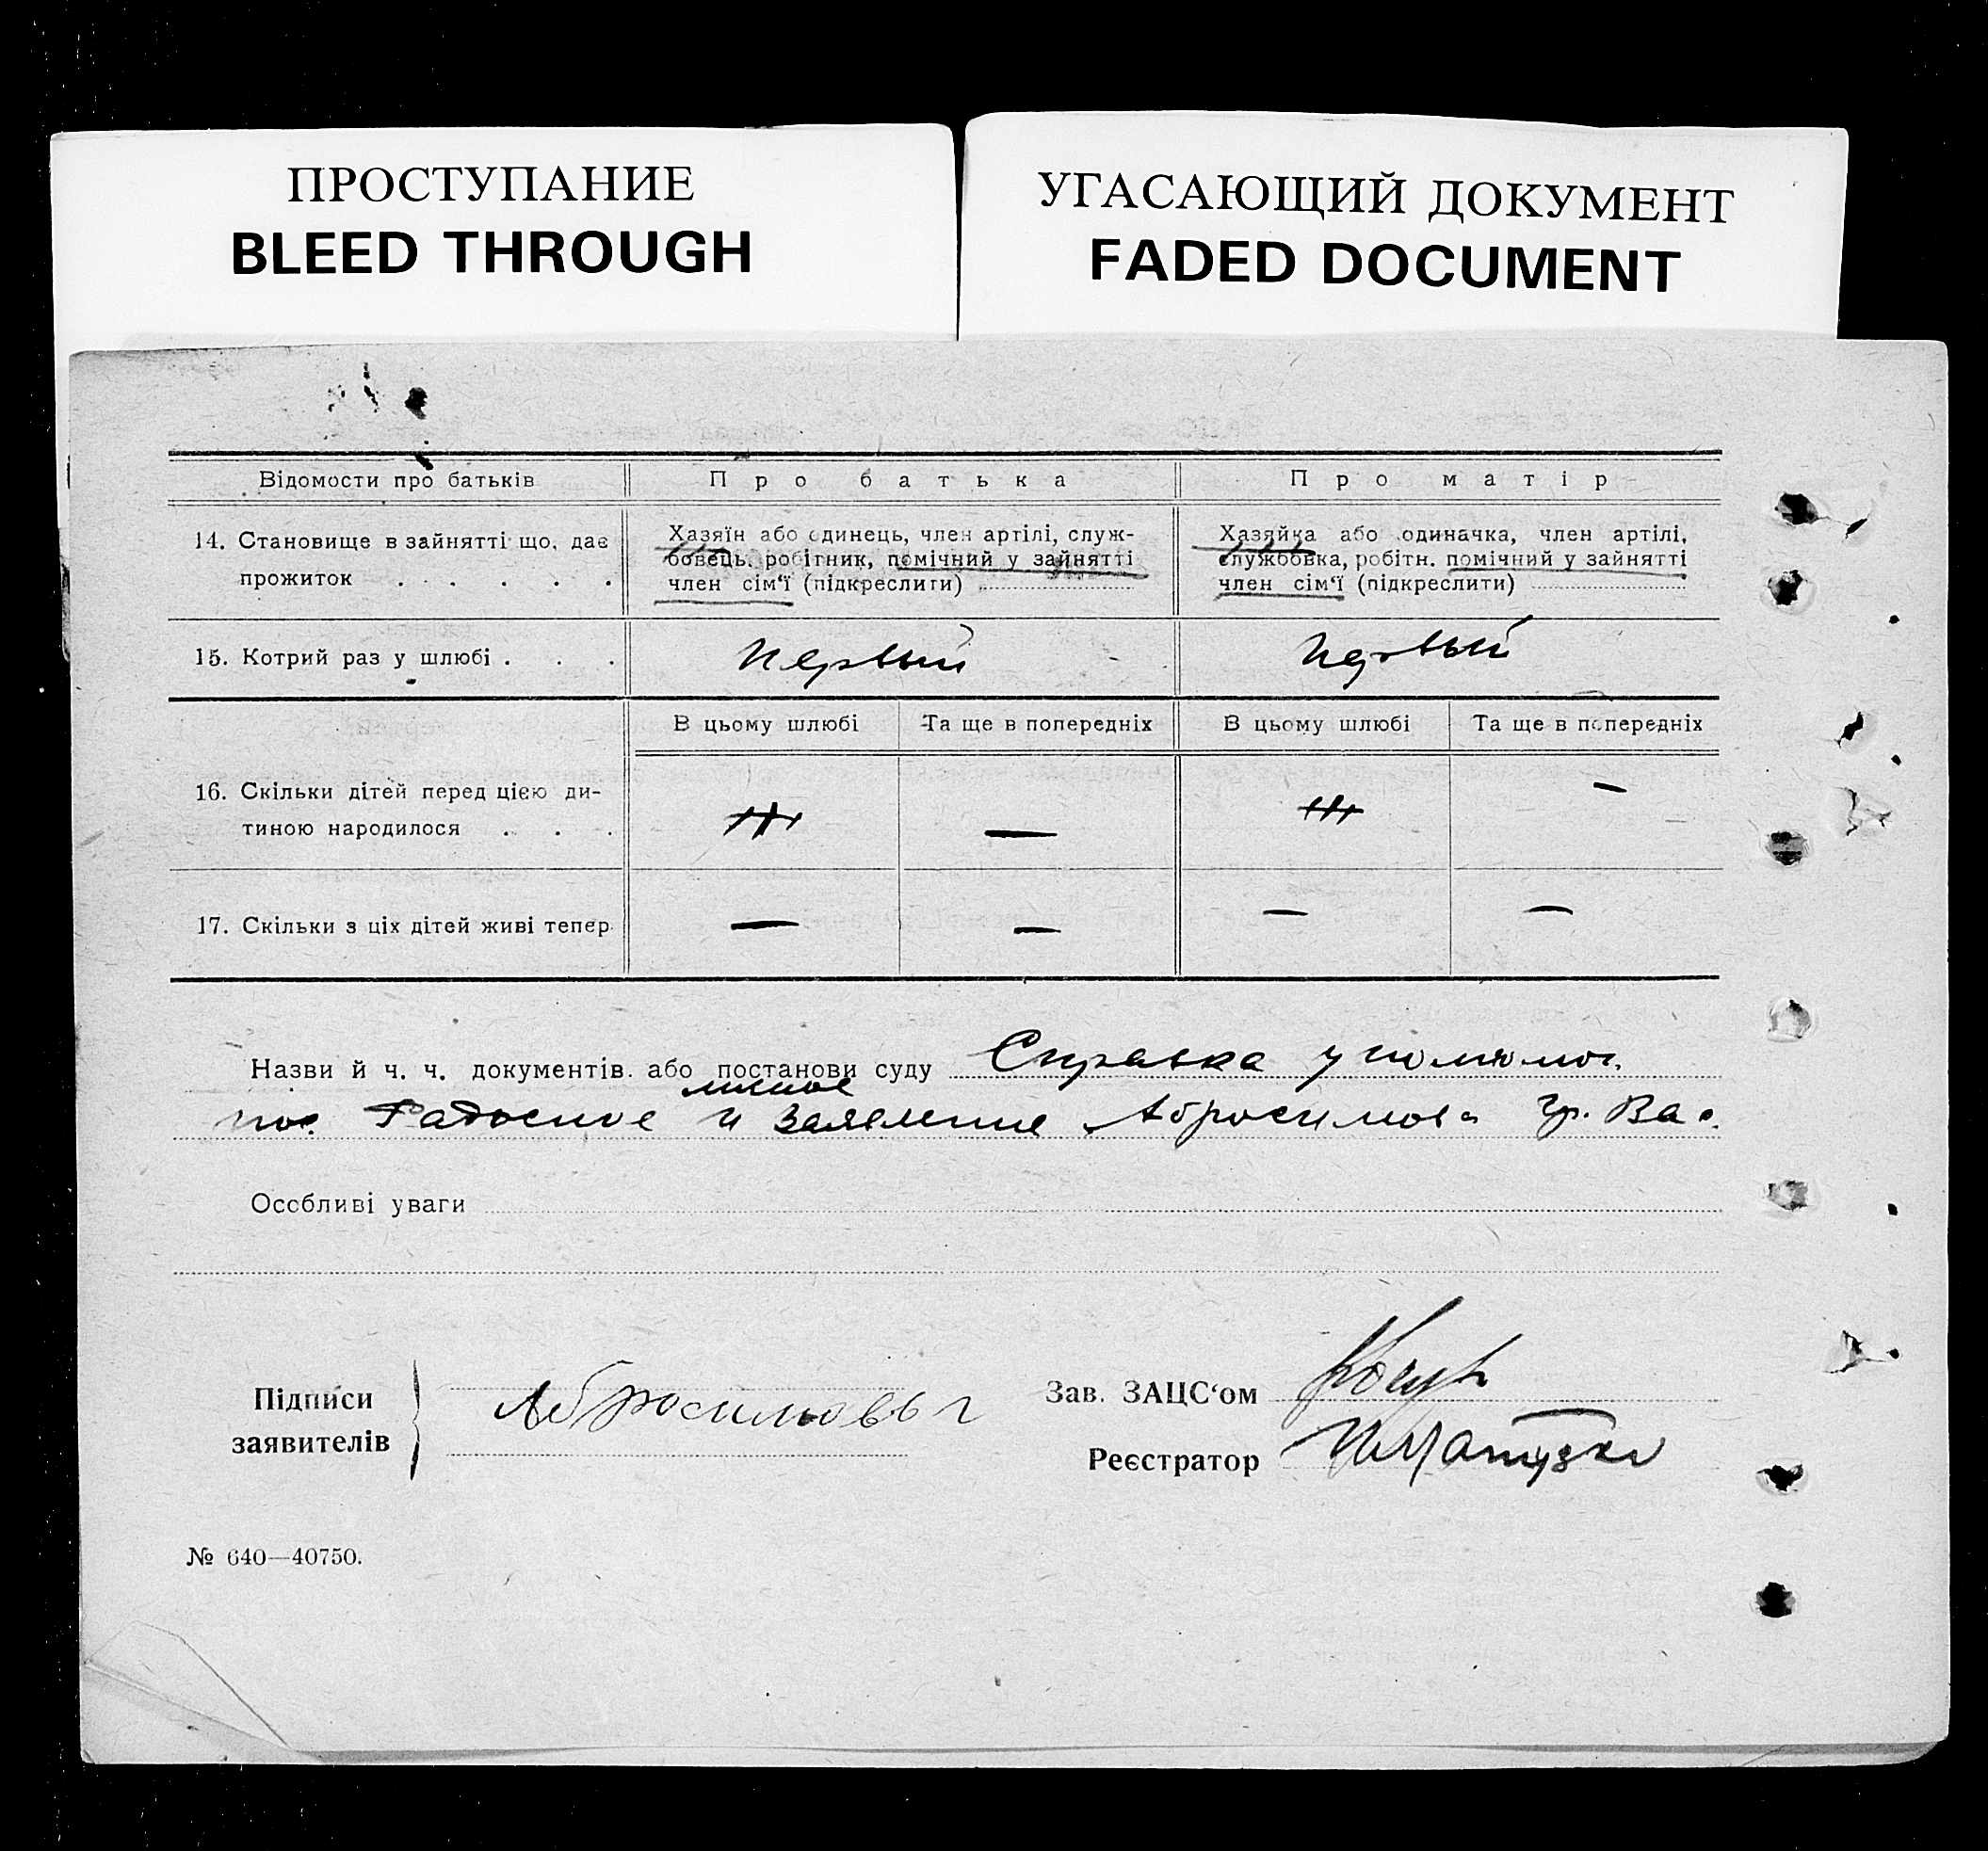 ПРОСТУПАНИЕ
BLEED THROUGH
УГАСАЮЩИЙ ДОКУМЕНТ
FADED DOCUMENT
Відомости про батьків
Про батька
Про матір
14. Становище в зайнятті що, дає
прожиток . . . . .
Хазяїн або одинець, член артілі, служ-
бовець, робітник, помічний у зайнятті
член сім‘ї (підкреслити)
Хазяйка або одиначка, член артілі,
службовка, робітн. помічний у зайнятті
член сім‘ї (підкреслити)
15. Котрий раз у шлюбі . . .
первый
первый
В цьому шлюбі
Та ще в попередніх
В цьому шлюбі
Та ще в попередніх
16. Скільки дітей перед цією ди-
тиною народилося . . .
—
—
17. Скільки з ціх дітей живі тепер
—
—
—
—
Назви й ч. ч. документів. або постанови суду Справка
личное
пос. Радостное и заявление Абросимова Гр. Вас.
Особливі уваги
Підписи
заявителів
Абросимов
Зав. ЗАЦС‘ом
Реєстратор
№ 640—40750.